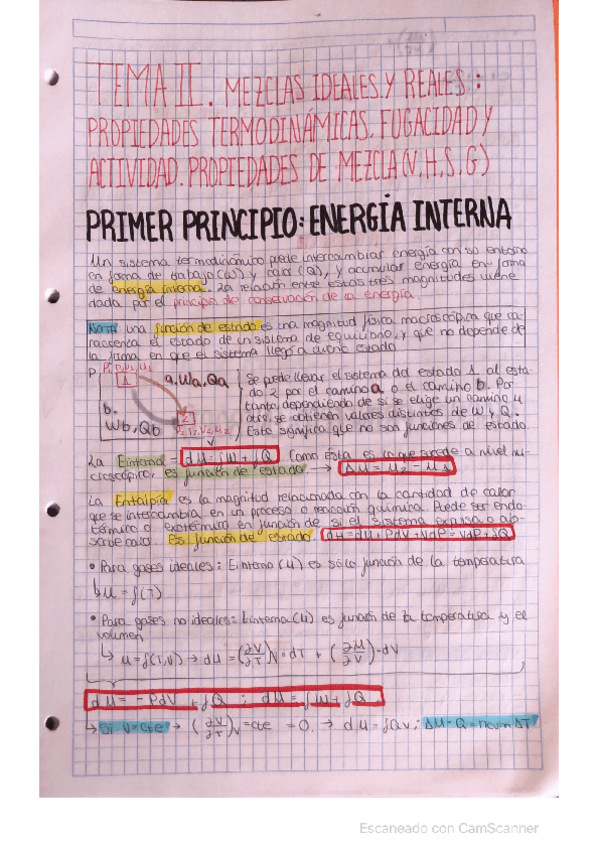 TEMA II. MEZCLAS IDEALES Y REALES :
PROPIEDADES TERMODINÁMICAS. FUGACIDAD Y
ACTIVIDAD. PROPIEDADES DE MEZCLA (V,H,S,G)
PRIMER PRINCIPIO: ENERGÍA INTERNA
Un sistema termodinámico puede intercambiar energía con su entorno
en forma de trabajo (W) y calor (Q), y acumular energía en forma
de energía interna. La relación entre estas tres magnitudes viene
dada por el principio de conservación de la energía.
NOTA: una función de estado es una magnitud física macroscópica que ca-
racteriza el estado de un sistema de equilibrio, y que no depende de
la forma en que el sistema llegó a dicho estado.
P
1
a.Wa,Qa
b.
Wb,Qb
2
Se puede llevar el sistema del estado 1 al esta-
do 2 por el camino a o el camino b. Por
tanto, dependiendo de si se elige un camino u
otro, se obtienen valores distintos de W y Q.
Esto significa que no son funciones de estado.
La Einterna → dU = δW + δQ. Como esta es lo que sucede a nivel mi-
croscópico, es función de estado. → ΔU = U2 - U1
La Entalpía es la magnitud relacionada con la cantidad de calor
que se intercambia en un proceso o reacción química. Puede ser endo-
térmico o exotérmico en función de si el sistema expulsa o ab-
sorbe calor. Es función de estado. dH = dU + PdV + VdP = VdP + δQ
• Para gases ideales: Einterna (U) es sólo función de la temperatura
↳ U = f(T)
• Para gases no ideales: Einterna (U) es función de la temperatura y el
volumen
↳ U = f(T,V) → dU = (∂V/∂T)V · dT + (∂U/∂V) · dV
dU = -PdV + δQ ; dU = δW + δQ
↳ Si V=cte → (∂V/∂T)V =cte = 0. → dU = δQv ; ΔU = Q = ncvmΔT
Escaneado con CamScanner